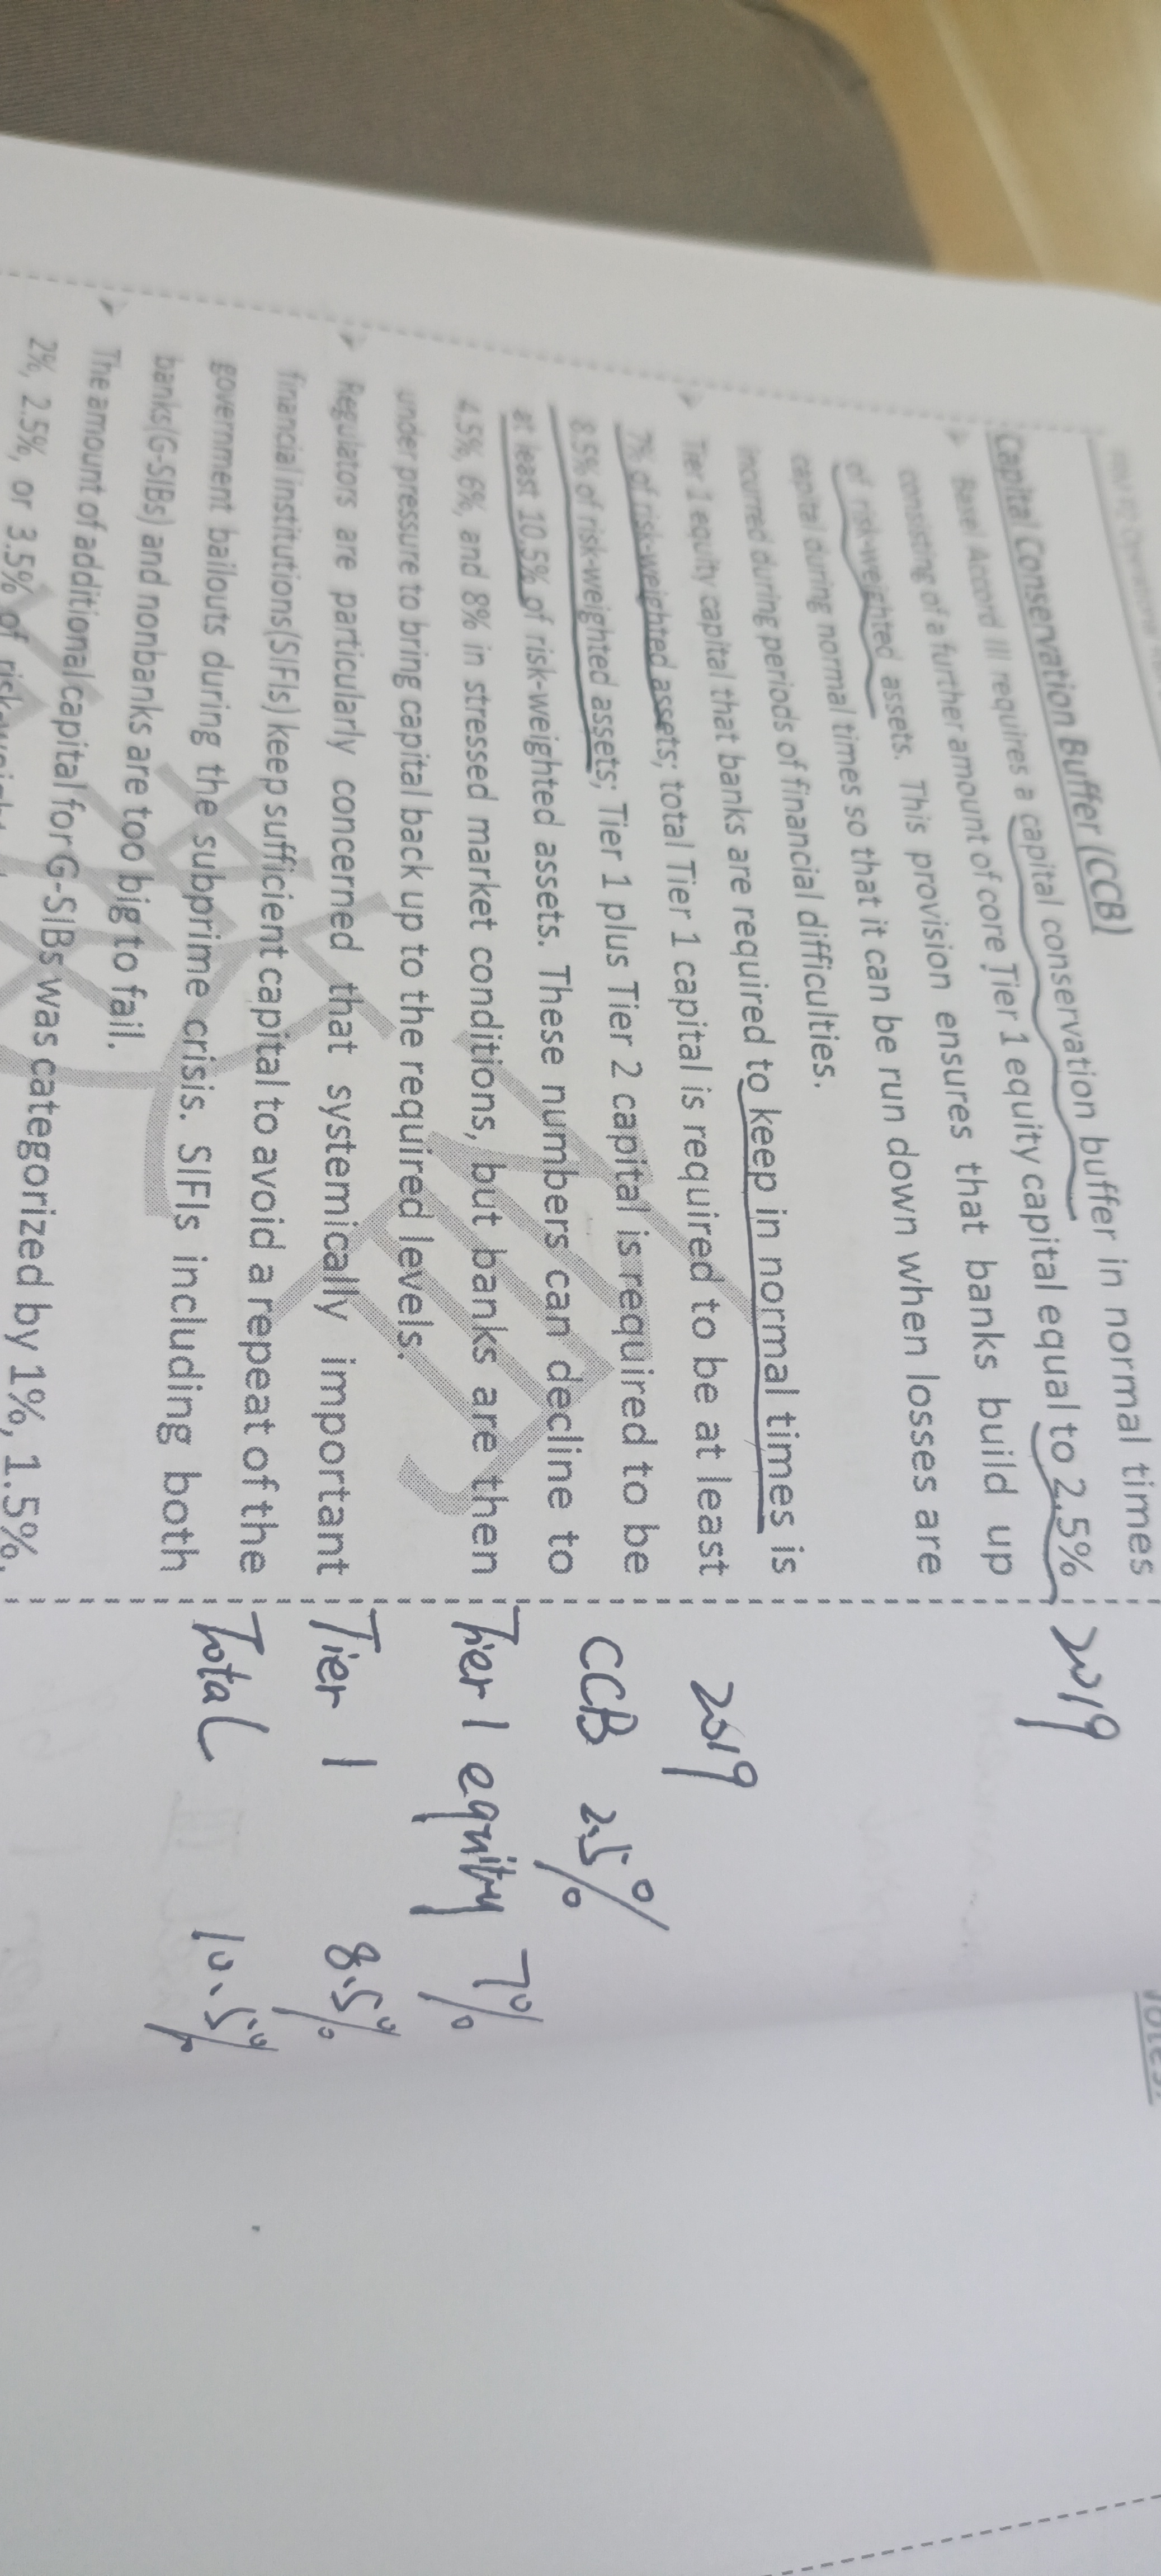 Capital Conservation Buffer (CCB)
Basel Accord III requires a capital conservation buffer in normal times
consisting of a further amount of core Tier 1 equity capital equal to 2.5%
of risk-weighted assets. This provision ensures that banks build up
capital during normal times so that it can be run down when losses are
incurred during periods of financial difficulties.
Tier 1 equity capital that banks are required to keep in normal times is
7% of risk-weighted assets; total Tier 1 capital is required to be at least
8.5% of risk-weighted assets; Tier 1 plus Tier 2 capital is required to be
at least 10.5% of risk-weighted assets. These numbers can decline to
4.5%, 6%, and 8% in stressed market conditions, but banks are then
under pressure to bring capital back up to the required levels.
Regulators are particularly concerned that systemically important
financial institutions(SIFIs) keep sufficient capital to avoid a repeat of the
government bailouts during the subprime crisis. SIFIs including both
banks(G-SIBs) and nonbanks are too big to fail.
The amount of additional capital for G-SIBs was categorized by 1%, 1.5%,
2%, 2.5%, or 3.5% of
2019
2019
CCB 2.5%
Tier 1 equity 7%
Tier 1 8.5%
Total 10.5%